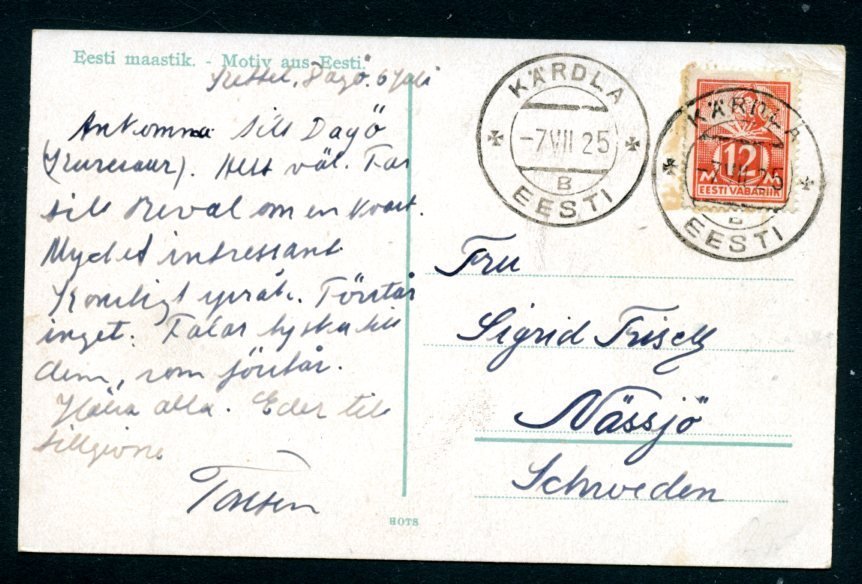 Eesti maastik. - Motiv aus Eesti.
Dagö. 6 Juli
Ankomna till Dagö
Allt väl. Far
till Reval om en kvart.
Mycket intressant
Konstigt språk. Förstår
inget. Talar tyska till
dem, som förstår.
Hälsa alla. Eder till
tillgivne
KÄRDLA
-7 VII 25
B
EESTI
KÄRDLA
-7 VII 25
B
EESTI
12
EESTI VABARIIK
Fru
Sigrid Frisch
Nässjö
Schweden
HOTS